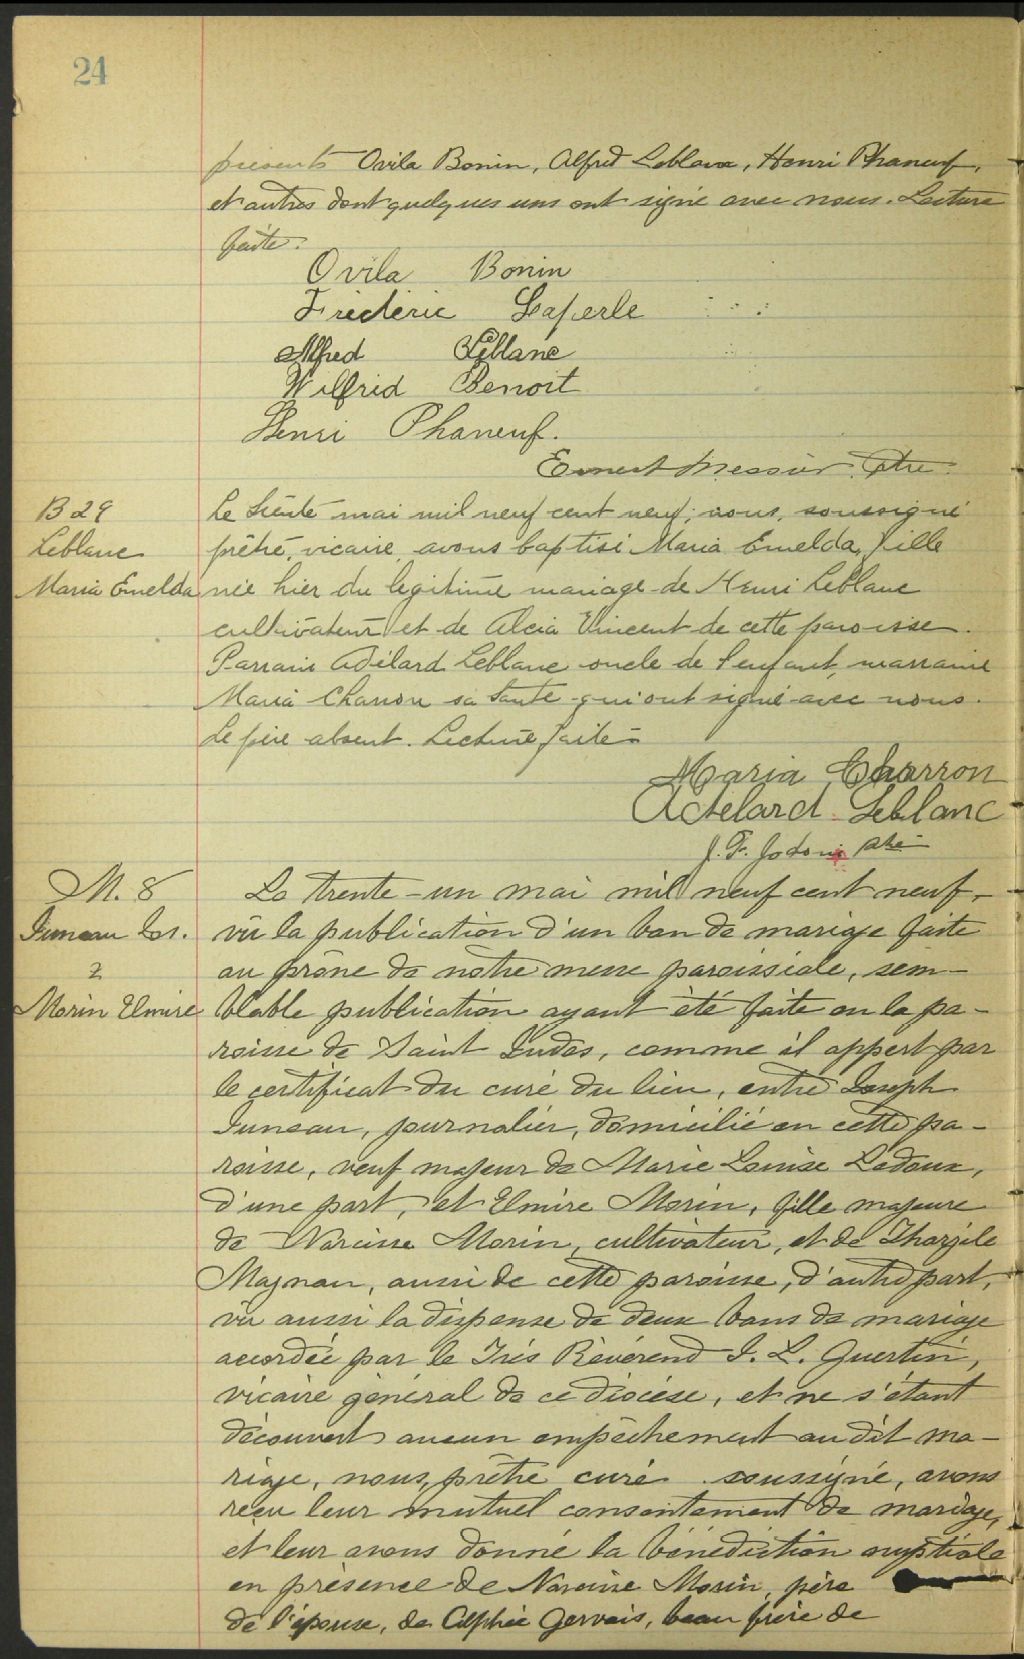 24
présents Ovila Bonin, Alfred Leblanc, Henri Phaneuf,
et autres dont quelques uns ont signé avec nous. Lecture
faite.
Ovila Bonin
Frédéric Laperle
Alfred Leblanc
Wilfrid Benoit
Henri Phaneuf.
Ernest Messier Ptre.
B 29
Leblanc
Maria Emelda
Le trente mai mil neuf cent neuf, nous, soussigné
prêtre, vicaire avons baptisé Maria Emelda, fille
née hier du légitime mariage de Henri Leblanc
cultivateur et de Alcia Vincent de cette paroisse.
Parrain Adélard Leblanc oncle de l'enfant, marraine
Maria Charron sa tante qui ont signé avec nous.
Le père absent. Lecture faite.
Maria Charron
Adelard Leblanc
J. F. Jodoin ptre
M. 8
Juneau Jos.
&
Morin Elmire
Le trente-un mai mil neuf cent neuf,
vû la publication d'un ban de mariage faite
au prône de nôtre messe paroissiale, sem-
blable publication ayant été faite en la pa-
roisse de Saint Judes, comme il appert par
le certificat du curé du lieu, entre Joseph
Juneau, journalier, domicilié en cette pa-
roisse, veuf majeur de Marie Louise Ledoux,
d'une part, et Elmire Morin, fille majeure
de Narcisse Morin, cultivateur, et de Tharzile
Magnan, aussi de cette paroisse, d'autre part,
vu aussi la dispense de deux bans de mariage
accordée par le Très Révérend J. L. Guertin,
vicaire général de ce diocèse, et ne s'étant
découvert aucun empêchement au dit ma-
riage, nous, prêtre curé soussigné, avons
reçu leur mutuel consentement de mariage,
et leur avons donné la bénédiction nuptiale
en présence de Narcisse Morin, père
de l'épouse, de Alphée Gervais, beau frère de